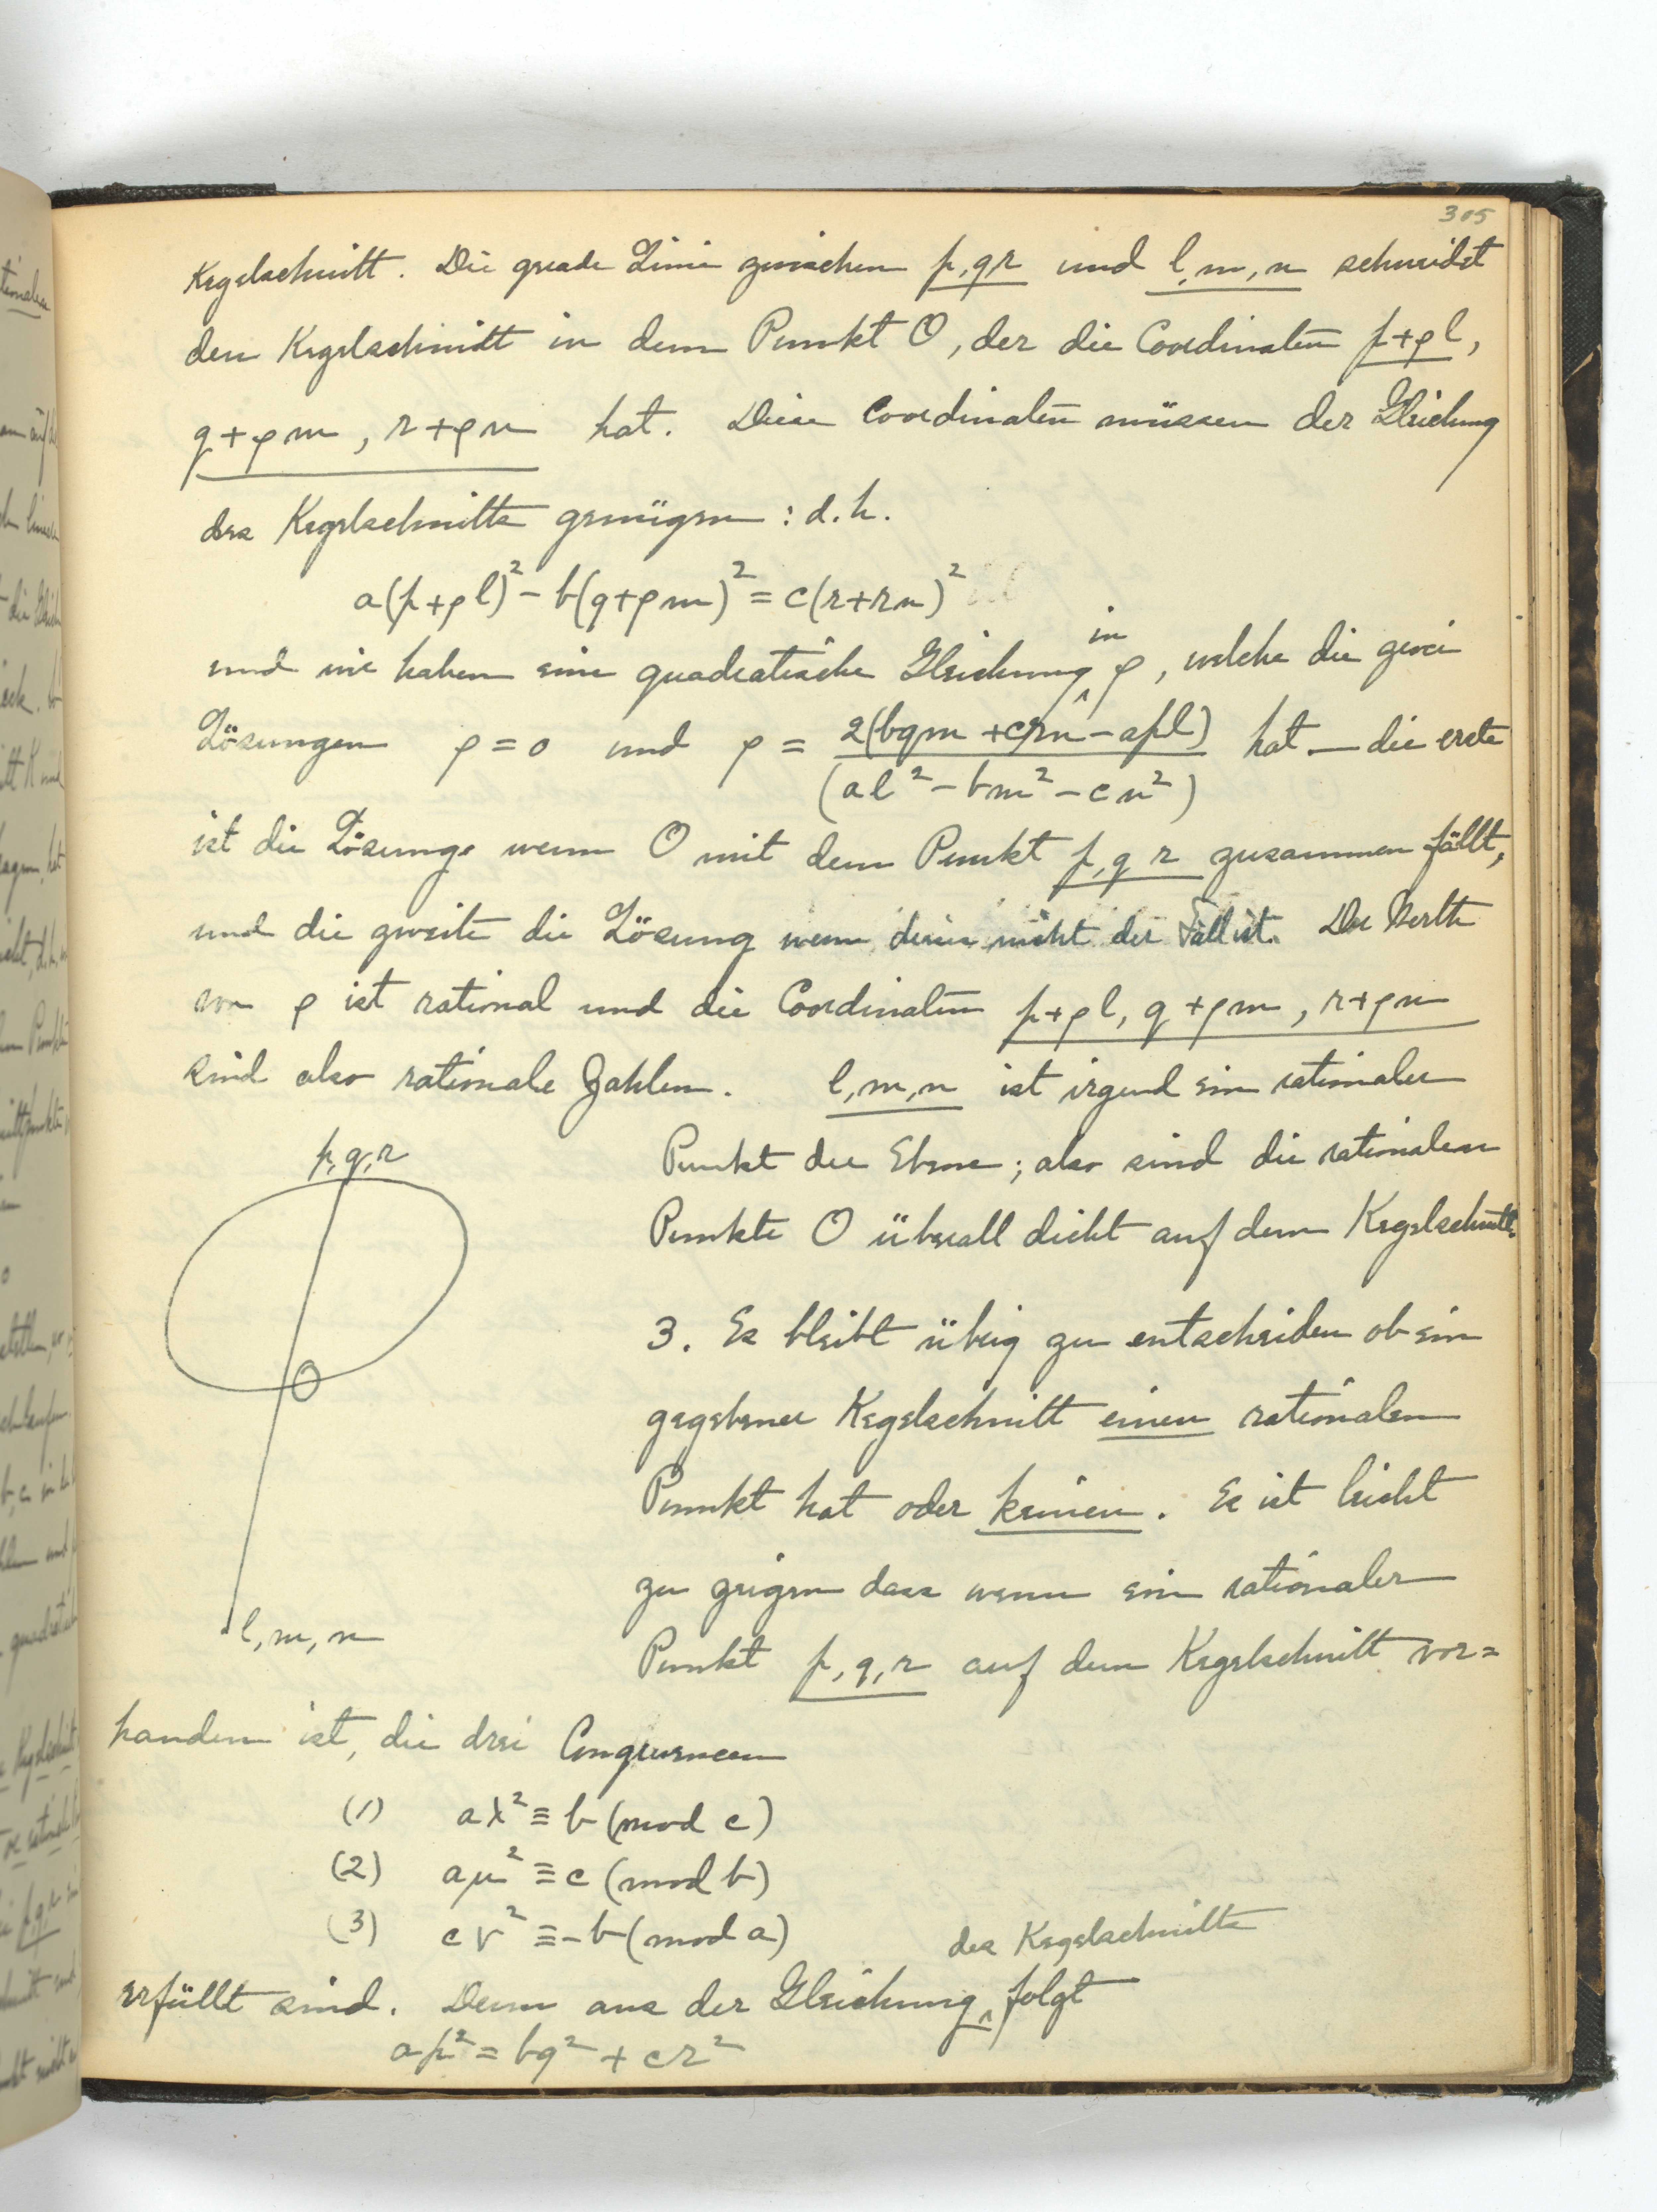 305
Kegelschnitt. Die grade Linie zwischen p,qr und l,m,n schneidet
den Kegelschnitt in dem Punkt O, der die Coordinaten p+ρl,
q+ρm, r+ρn hat. Diese Coordinaten müssen der Gleichung
des Kegelschnitts genügen: d.h.
a(p+ρl)² - b(q+ρm)² = c(r+rn)²
und wir haben eine quadratische Gleichung in ρ, welche die zwei
Lösungen ρ=0 und ρ = 2(bqm+crn-apl) / (al²-bm²-cn²) hat — die erste
ist die Lösunge wenn O mit dem Punkt p,q r zusammen fällt,
und die zweite die Lösung wenn dieses nicht der Fall ist. Der Werth
von ρ ist rational und die Coordinaten p+ρl, q+ρm, r+ρn
sind also rationale Zahlen. l,m,n ist irgend ein rationaler
Punkt der Ebene; also sind die rationalen
Punkte O überall dicht auf dem Kegelschnitt.
p,q,r
O
l,m,n
3. Es bleibt übrig zu entscheiden ob ein
gegebener Kegelschnitt einen rationalen
Punkt hat oder keinen. Es ist leicht
zu zeigen dass wenn ein rationaler
Punkt p,q,r auf dem Kegelschnitt vor=
handen ist, die drei Congruencen
(1) aλ² ≡ b (mod c)
(2) aμ² ≡ c (mod b)
(3) cν² ≡ -b (mod a)
erfüllt sind. Denn aus der Gleichung des Kegelschnitts folgt
ap² = bq² + cr²